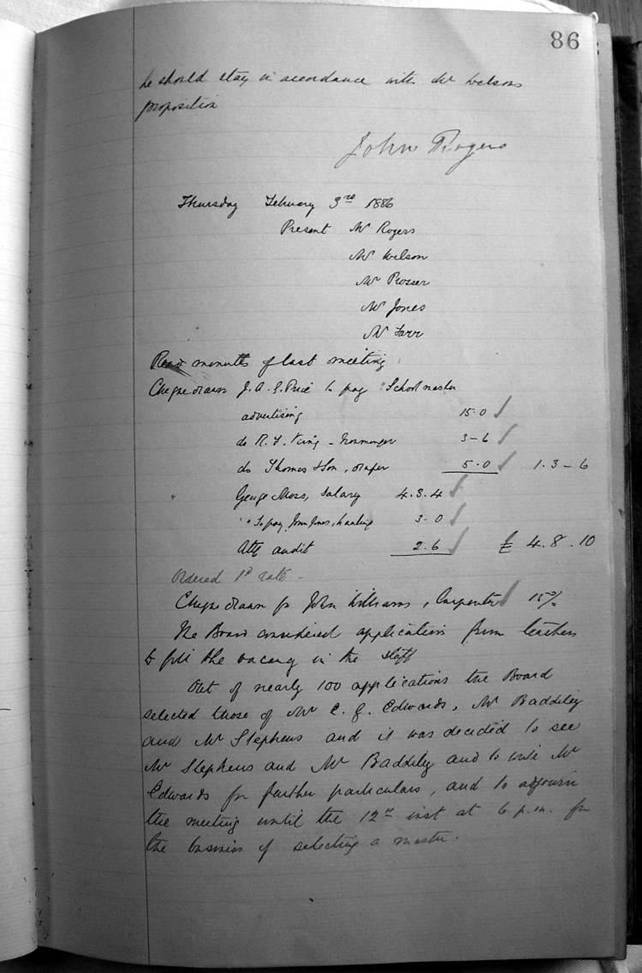 86
he should stay in accordance with Mr Wilsons
proposition
John Rogers
Thursday February 3rd 1886
Present Mr Rogers
Mr Wilson
Mr Prosser
Mr Jones
Mr Farr
Read minutes of last meeting
Cheque drawn J. A. G. Price to pay Schoolmaster
advertising 15.0
do R. F. King - Ironmonger 3-6
do Thomas & Son, draper 5.0 1.3-6
George Moss, Salary 4.3.4
" to pay John Jones, hauling 3-0
Attg audit 2.6 £ 4.8.10
Ordered 1d rate -
Cheque drawn for John Williams, Carpenter 15/-
The Board considered applications from teachers
to fill the vacancy in the staff
Out of nearly 100 applications the Board
selected those of Mr C. G. Edwards, Mr Baddiley
and Mr Stephens and it was decided to see
Mr Stephens and Mr Baddily and to write Mr
Edwards for further particulars, and to adjourn
the meeting until the 12th inst at 6 p.m. for
the business of selecting a master.